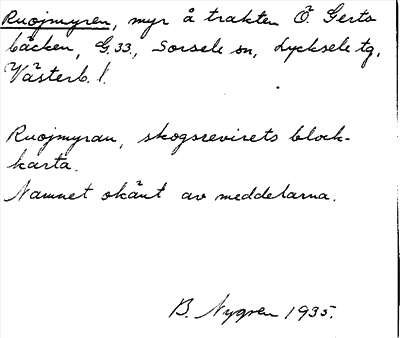 Ruojmyren, myr å trakten Ö Gerts
bäcken, G.33., Sorsele sn, Lycksele tg,
Västerb. l.
Ruojmyran, skogsrevirets block-
karta.
Namnet okänt av meddelarna.
B. Nygren 1935.